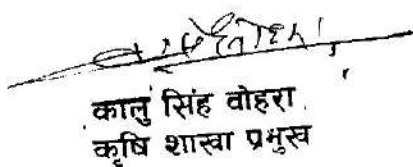 कालु सिंह वोहरा
कृषि शाखा प्रमुख